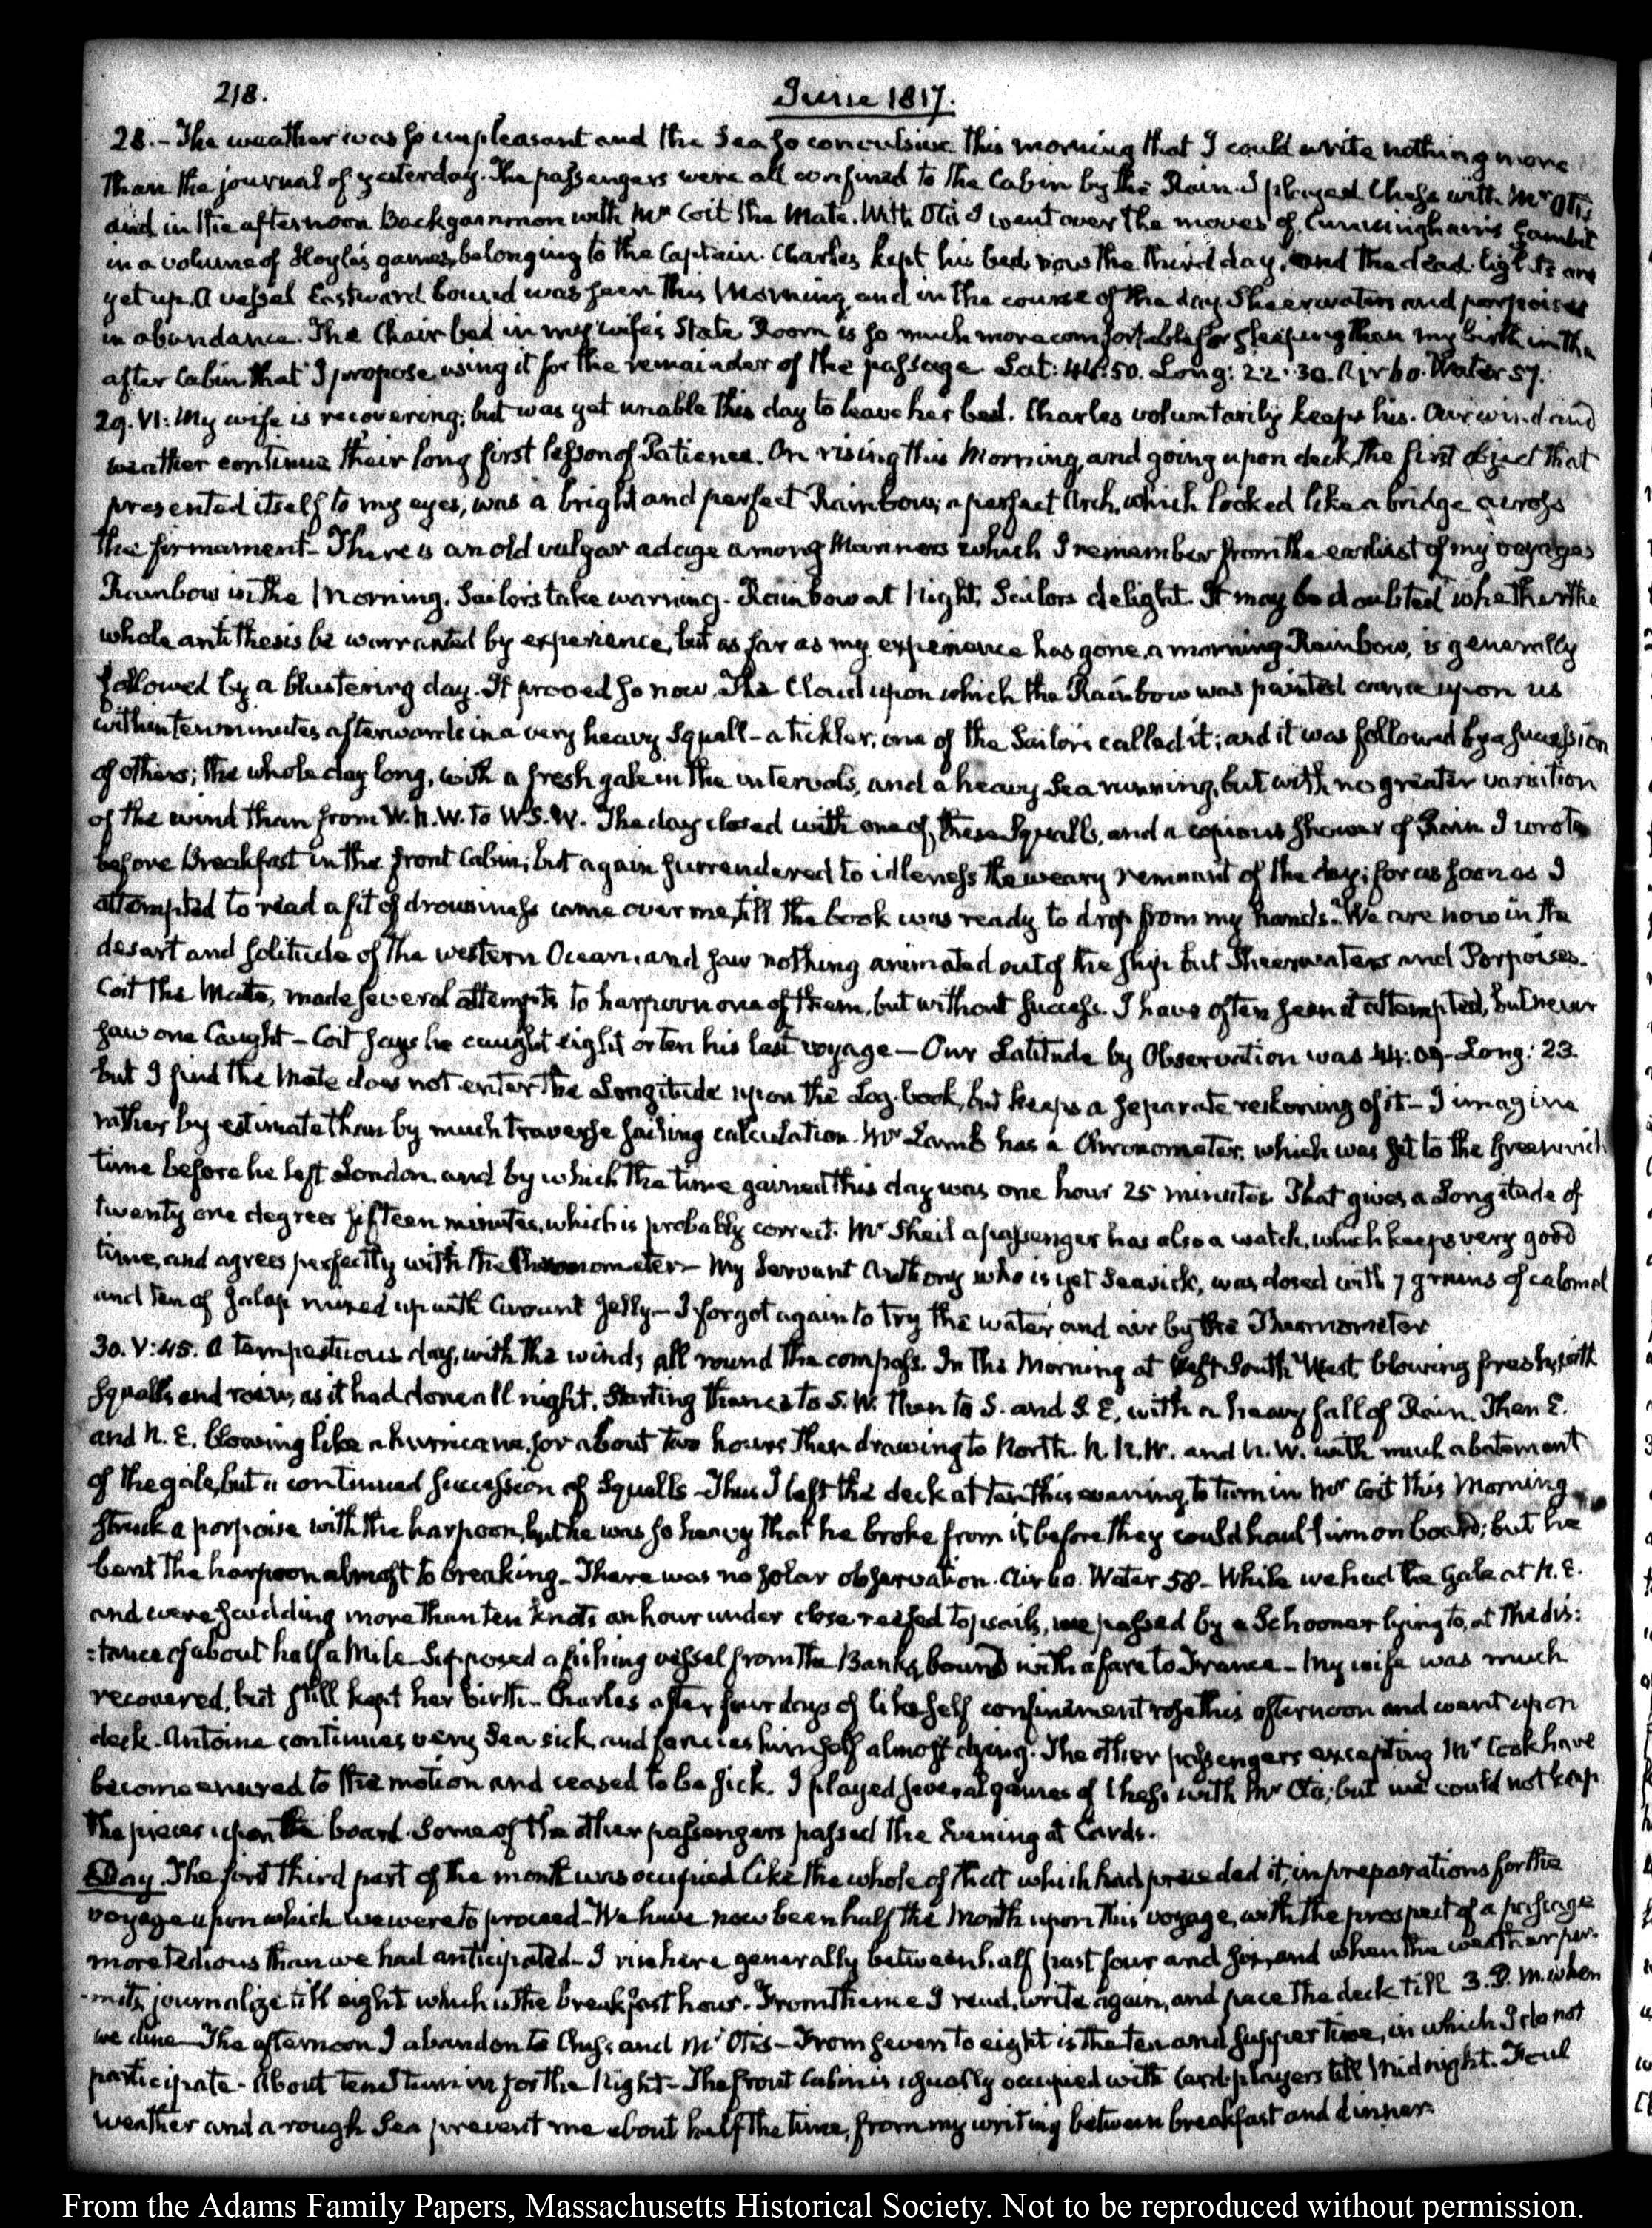 218.
June 1817.
28.- The weather was so unpleasant and the Sea so convulsive this morning that I could write nothing more
than the journal of yesterday. The passengers were all confined to the Cabin by the Rain. I played Chess with Mr Otis
and in the afternoon Backgammon with Mr Coit the Mate. With Otis I went over the moves of Cunningham's Gambit
in a volume of Hoyle's games, belonging to the Captain. Charles kept his bed, now the third day, and the dead lights are
yet up. A vessel Eastward bound was seen this Morning, and in the course of the day Sheerwaters and porpoises
in abundance. The Chair bed in my wife's State Room is so much more comfortable for sleeping than my birth in the
after Cabin that I propose using it for the remainder of the passage. Lat: 44:50. Long: 22.30. Air 60. Water 57.
29. VI: My wife is recovering; but was yet unable this day to leave her bed. Charles voluntarily keeps his. Our wind and
weather continue their long first lesson of Patience. On rising this Morning, and going upon deck, the first object that
presented itself to my eyes, was a bright and perfect Rainbow; a perfect Arch, which looked like a bridge across
the firmament- There is an old vulgar adage among Mariners which I remember from the earliest of my voyages
Rainbow in the Morning, Sailors take warning. Rainbow at Night, Sailors delight. It may be doubted whether the
whole antithesis be warranted by experience, but as far as my experience has gone, a morning Rainbow, is generally
followed by a blustering day. It proved so now. The Cloud upon which the Rainbow was painted came upon us
within ten minutes afterwards in a very heavy Squall- a tickler, one of the Sailors called it; and it was followed by a succession
of others; the whole day long, with a fresh gale in the intervals, and a heavy Sea running, but with no greater variation
of the wind than from W.N.W. to W.S.W. The day closed with one of these Squalls, and a copious shower of Rain. I wrote
before Breakfast in the front Cabin; but again surrendered to idleness the weary remnant of the day; for as soon as I
attempted to read a fit of drowsiness came over me, till the book was ready to drop from my hands. We are now in the
desart and solitude of the western Ocean, and saw nothing animated out of the ship but Sheerwaters and Porpoises.
Coit the Mate, made several attempts to harpoon one of them, but without success. I have often seen it attempted, but never
saw one Caught- Coit says he caught eight or ten his last voyage- Our Latitude by Observation was 44:09- Long: 23.
but I find the Mate does not enter the Longitude upon the Log-book, but keeps a separate reckoning of it- I imagine
rather by estimate than by much traverse sailing calculation. Mr Lamb has a Chronometer, which was set to the Greenwich
time before he left London, and by which the time gained this day was one hour 25 minutes. That gives a Longitude of
twenty one degrees fifteen minutes, which is probably correct. Mr Sheil a passenger has also a watch, which keeps very good
time, and agrees perfectly with the Chronometer- My Servant Anthony who is yet Seasick, was dosed with 7 grains of calomel
and ten of Jalap mixed up with Currant Jelly- I forgot again to try the water and air by the Thermometer
30. V:45. A tempestuous day, with the winds all round the compass. In the Morning at West South West, blowing fresh, with
Squalls and rain, as it had done all night. Starting thence to S.W. then to S. and S.E, with a heavy fall of Rain. Then E.
and N.E. blowing like a hurricane, for about two hours. Then drawing to North. N.N.W. and N.W. with much abatement
of the gale, but a continued succession of Squalls- Thus I left the deck at ten this evening, to turn in. Mr Coit this Morning
struck a porpoise with the harpoon, but he was so heavy that he broke from it before they could haul him on board; but he
bent the harpoon almost to breaking- There was no solar observation. Air 60. Water 58- While we had the Gale at N.E.
and were scudding more than ten knots an hour under close reefed topsails, we passed by a Schooner lying to, at the dis:
:tance of about half a Mile- Supposed a fishing vessel from the Banks, bound with a fare to France- My wife was much
recovered, but still kept her birth- Charles after four days of like self confinement rose this afternoon and went upon
deck. Antoine continues very Sea sick, and fancies himself almost dying. The other passengers excepting Mr Cook have
become enured to the motion and ceased to be sick. I played several games of Chess with Mr Otis; but we could not keep
the pieces upon the board. Some of the other passengers passed the Evening at Cards.
Day. The first third part of the month was occupied like the whole of that which had preceded it, in preparations for the
voyage upon which we were to proceed- We have now been half the Month upon this voyage, with the prospect of a passage
more tedious than we had anticipated- I rise here generally between half past four and six, and when the weather per-
-mits, journalize till eight which is the breakfast hour. From thence I read, write again, and pace the deck till 3. P.M. when
we dine- The afternoon I abandon to Chess and Mr Otis- From seven to eight is the tea and supper time, in which I do not
participate- About ten I turn in for the Night- The front Cabin is usually occupied with Card-players till Midnight. Foul
weather and a rough Sea prevent me about half the time, from my writing between breakfast and dinner.
From the Adams Family Papers, Massachusetts Historical Society. Not to be reproduced without permission.